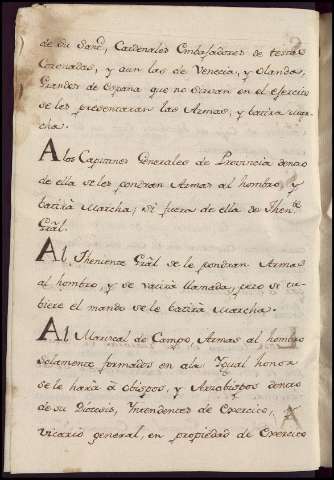 de su Sand, Cardenales Embaxadores de testas
Coronadas, y aun las de Venecia, y Olanda,
Grandes de España que no sirvan en el exercito
se les presentaran las Armas, y batira mar-
cha.
A los Capitanes Generales de Provincia dentro
de ella se les pondran Armas al hombro, y
batirà Marcha; Si fuera de ella de Thente
Gràl.
Al Theniente Gràl se le pondran Armas
al hombro, y se vatirá llamada, pero si tu-
biere el mando se le batirà Marcha.
Al Mariscal de Campo, Armas al hombro
solamente formados en ala. Igual honor
se le harà à Obispos, y Arzobispos dentro
de su Diocesis, Intendentes de Exercito,
vicario general, en propiedad de Exercito